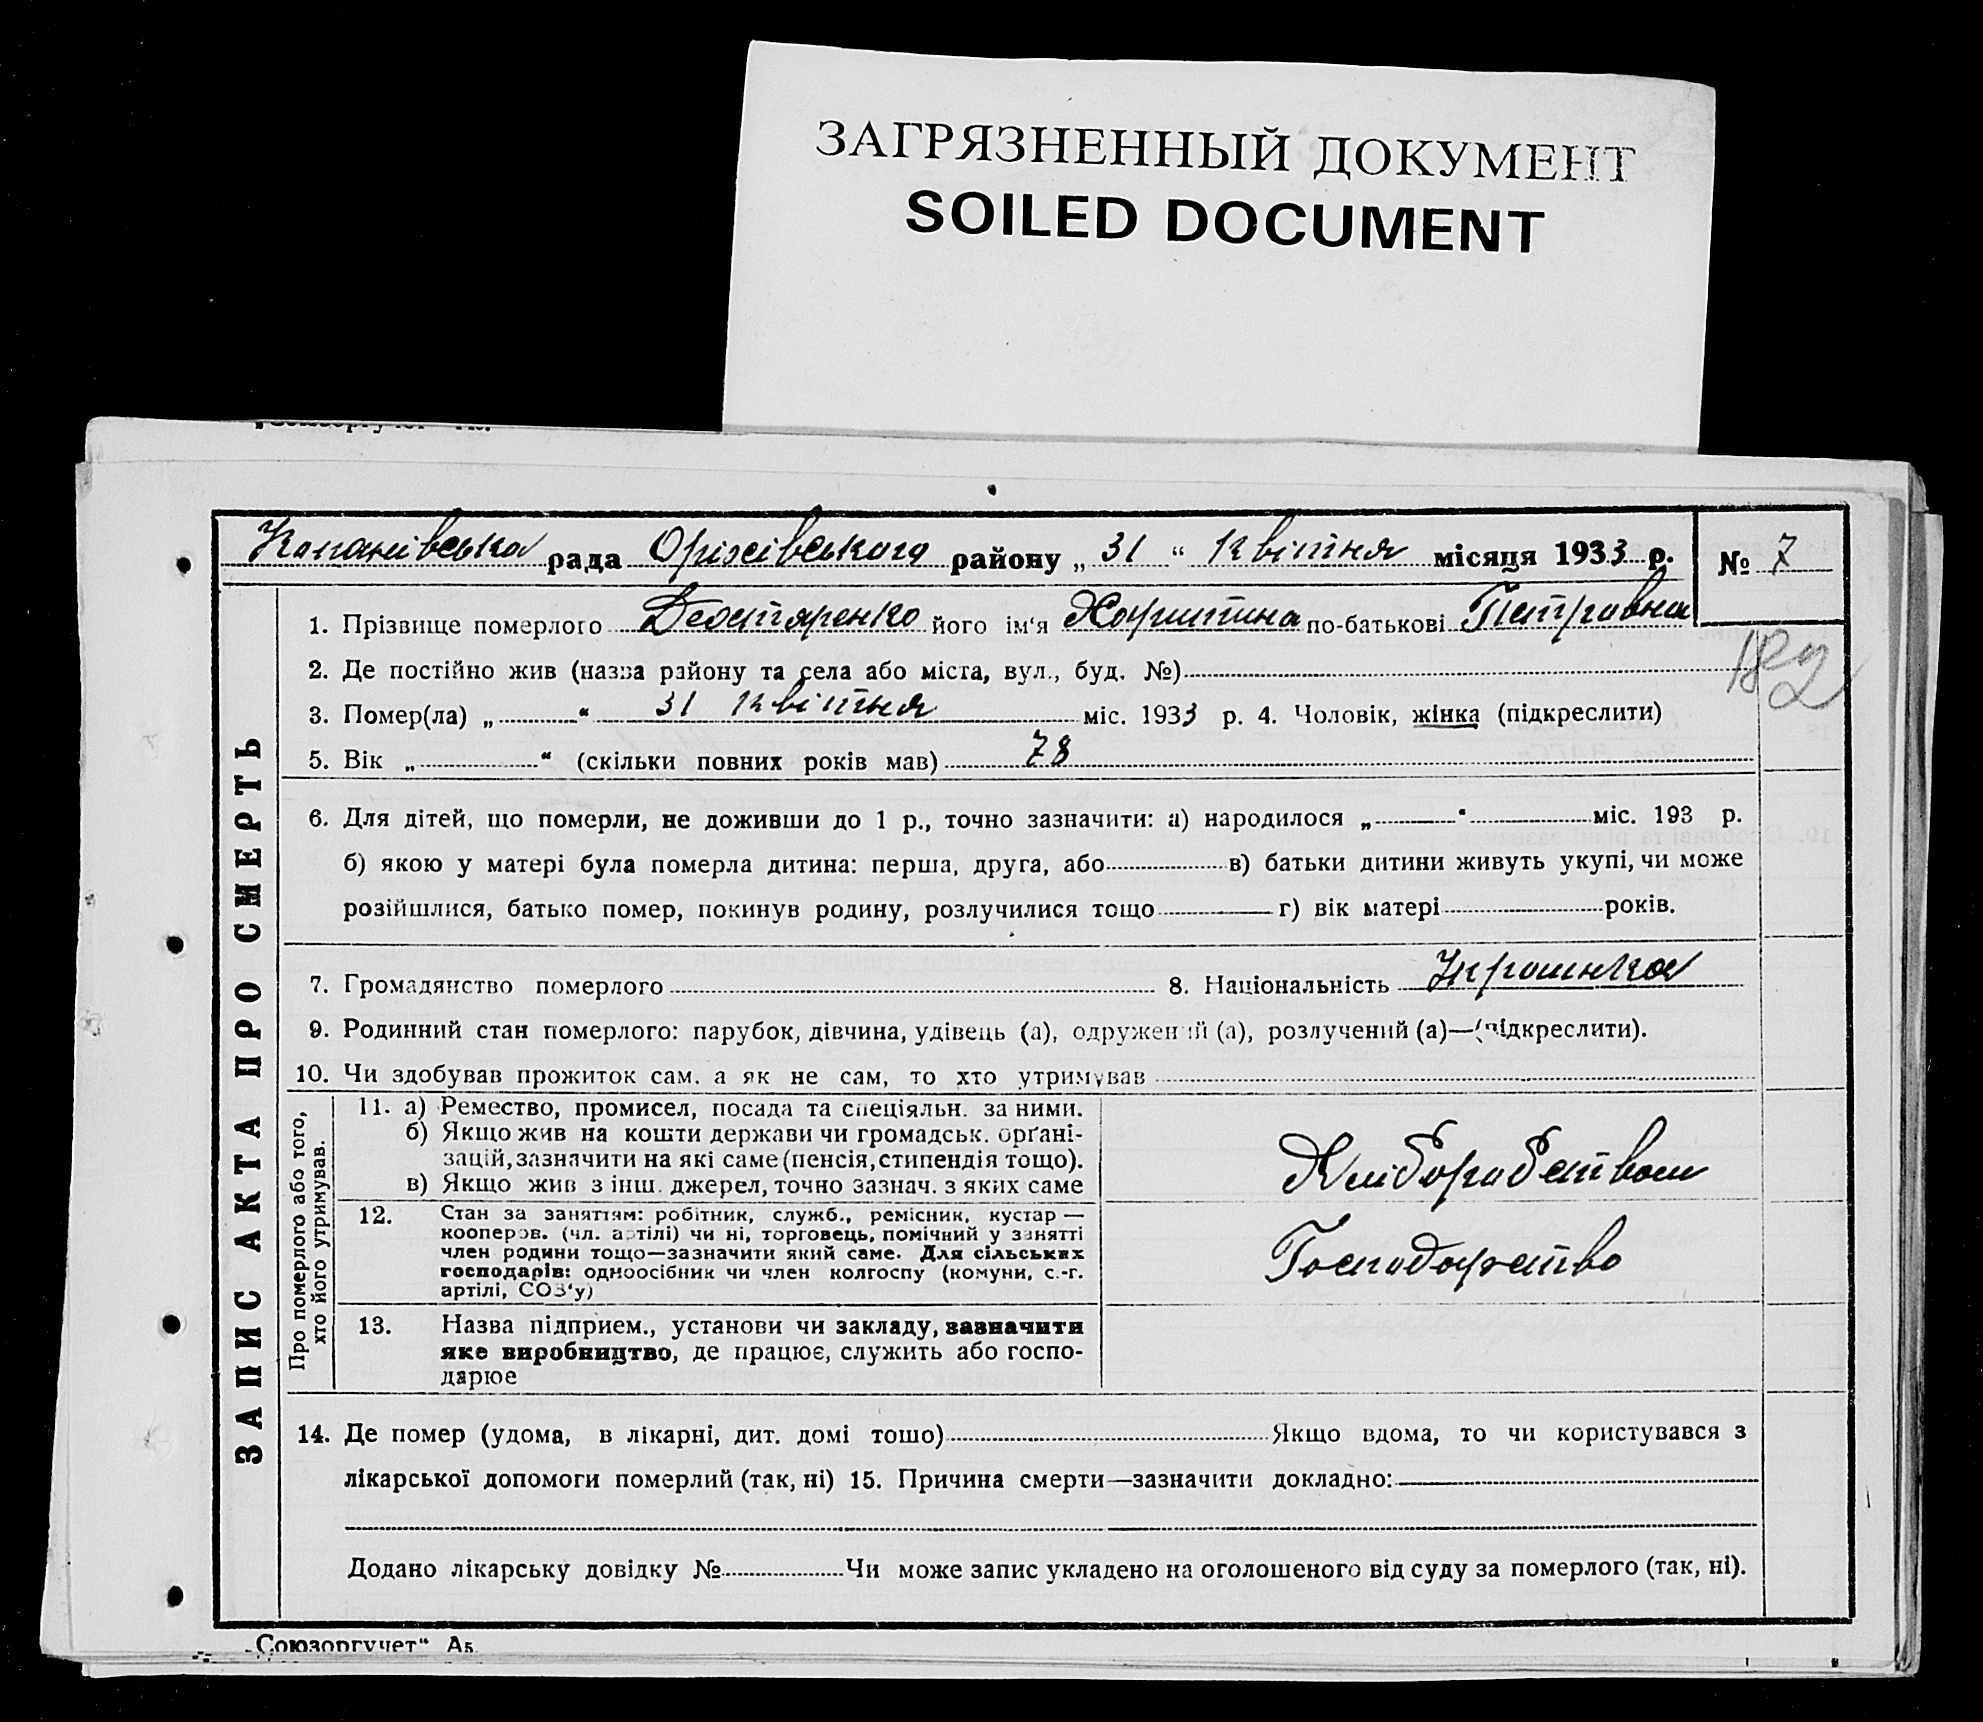 ЗАГРЯЗНЕННЫЙ ДОКУМЕНТ
SOILED DOCUMENT
рада Оріхівського району „ 31 “ квітня місяця 1933 р. № 7
1. Прізвище померлого Дегтяренко його ім‘я Хористина по-батькові Петровна
182
2. Де постійно жив (назва району та села або міста, вул., буд. №)
3. Помер(ла) „ “ 31 квітня міс. 1933 р. 4. Чоловік, жінка (підкреслити)
5. Вік „ “ (скільки повних років мав) 78
6. Для дітей, що померли, не доживши до 1 р., точно зазначити: а) народилося „ “ міс. 193 р.
б) якою у матері була померла дитина: перша, друга, або в) батьки дитини живуть укупі, чи може
розійшлися, батько помер, покинув родину, розлучилися тощо г) вік матері років.
7. Громадянство померлого 8. Національність Украинка
9. Родинний стан померлого: парубок, дівчина, удівець (а), одружений (а), розлучений (а)—(підкреслити).
10. Чи здобував прожиток сам. а як не сам, то хто утримував
ЗАПИС АКТА ПРО СМЕРТЬ
Про померлого або того,
хто його утримував.
11. а) Ремество, промисел, посада та спеціяльн. за ними.
б) Якщо жив на кошти держави чи громадськ. орґані-
зацій, зазначити на які саме (пенсія, стипендія тощо).
в) Якщо жив з інш. джерел, точно зазнач. з яких саме
Хлиборобством
12. Стан за заняттям: робітник, служб., ремісник, кустар —
кооперов. (чл. артілі) чи ні, торговець, помічний у занятті
член родини тощо—зазначити який саме. Для сільських
господарів: одноосібник чи член колгоспу (комуни, с.-г.
артілі, СОЗ‘у)
Господарство
13. Назва підприєм., установи чи закладу, зазначити
яке виробництво, де працює, служить або госпо-
дарює
14. Де помер (удома, в лікарні, дит. домі тошо) Якщо вдома, то чи користувався з
лікарської допомоги померлий (так, ні) 15. Причина смерти—зазначити докладно:
Додано лікарську довідку № Чи може запис укладено на оголошеного від суду за померлого (так, ні).
„Союзоргучет“ А5